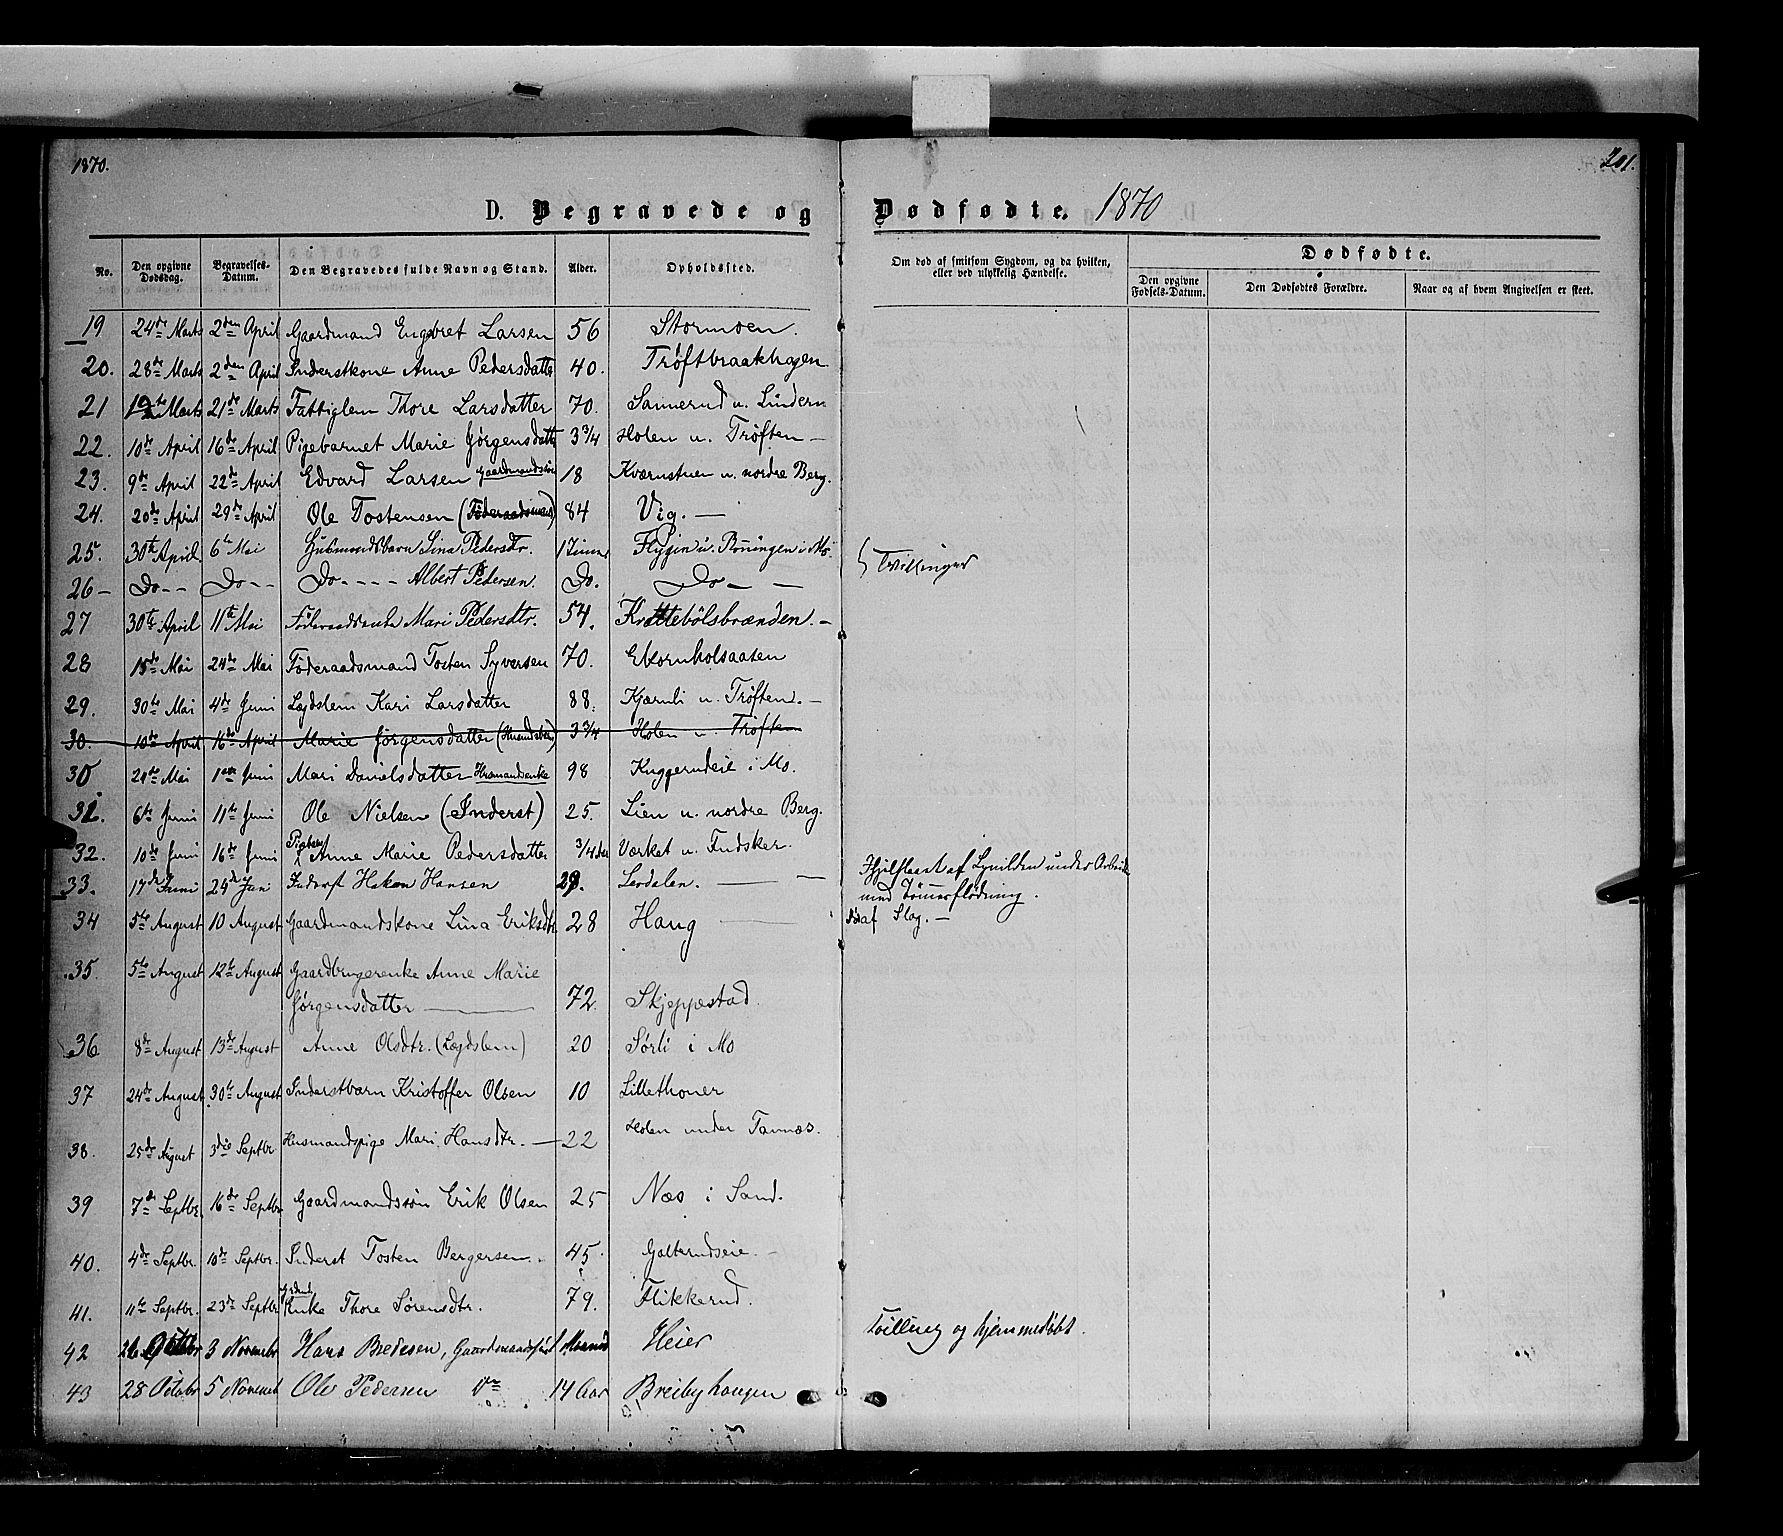 1870.
201.
D. Begravede og Dødfødte. 1870
No. Den opgivne Dødsdag. Begravelses-Datum. Den Begravedes fulde Navn og Stand. Alder. Opholdssted. Om død af smitsom Sygdom, og da hvilken, eller ved ulykkelig Hændelse. Dødfødte.
Den opgivne Fødsels-Datum. Den Dødfødtes Forældre. Naar og af hvem Angivelsen er skeet.
19 24de Marts 2den April Gaardmand Engebret Larsen 56 Stormoen.
20. 28de Marts 2den April Inderstkone Anne Pedersdatter 40. Trøftbraakhagen
21 Marts 21de Marts Fattiglem Thore Larsdatter 70. Sannerud u. Lindern
22. 10de April 16de April Pigebarnet Marie Jørgensdatter 3 3/4 Holen u. Trøften —
23. 9de April 22de April Edvard Larsen Gaardmandssøn 18 Kværnstuen u. nordre Berg.
24. 20de April 29de April Ole Tostensen (Føderaadsmand) 84 Vig. —
25. 30te April 6te Mai Husmandsbarn Lina Pedersdtr. 1 Time Flygin u. Rønningen i Mo. } Tvillinger
26 — Do — Do — Do — Albert Pedersen. Do. Do —
27 30te April 11te Mai Føderaadsenke Mari Pedersdtr. 54. Krættebölsbrænden. —
28 18de Mai 24de Mai Føderaadsmand Tosten Syversen 70. Ekornholsaasen
29. 30te Mai 4de Juni Lægdslem Kari Larsdatter 88. Kjærnli u. Trøften. —
30. 10de April 16de April Marie Jørgensdatter 3 3/4 Holen u Trøften
30 Mai Juni Mari Danielsdatter Husmandsenke 98 Kuggerudeie i Mo.
31. 6te Juni 11te Juni Ole Nielsen (Inderst) 25. Lien u. nordre Berg.
32. 10de Juni 16de Juni Pigebarn Anne Marie Pedersdatter 3/4 Værket u. Fudsker.
33. 17de Juni 24de Juni Inderst Hakon Hansen 29. Lerdalen. — Ihjelslaaet af Lynilden under Arbeide
med Tømmerflødning.
34 5te August 10 August Gaardmandskone Lina Eriksdtr. 28 Haug Død af Slag. —
35. 5te August 12te August Gaardbrugerenke Anne Marie
Jørgensdatter — 72. Skjeppestad.
36 8de August 13de August Anne Olsdtr. (Lægdslem) 20 Sørli i Mo
37 24de August 30te August Inderstbarn Kristoffer Olsen 10 Lillethoner
38. 25de August 3die Septbr Husmandspige Mari Hansdtr. — 22 Holen under Tannæs.
39 7de Septbr. 16de Septbr Gaardmandssøn Erik Olsen 25 Næs i Sand.
40. 4de Septbr. 10de Septbr. Inderst Tosten Bergersen. 45. Galterudseie. —
41. 11te Septbr. 23de Septbr Enke Thore Sørensdtr. 79. Flikkerud.
42 26 Octbr 3 Novembr Hans Bredesen, Gaardmandssøn 1 Maaned Heier Tvilling og hjemmedøbt.
43 28 Octobr 5 Novemb Ole Pedersen Do 14 Aar Breibyhaugen